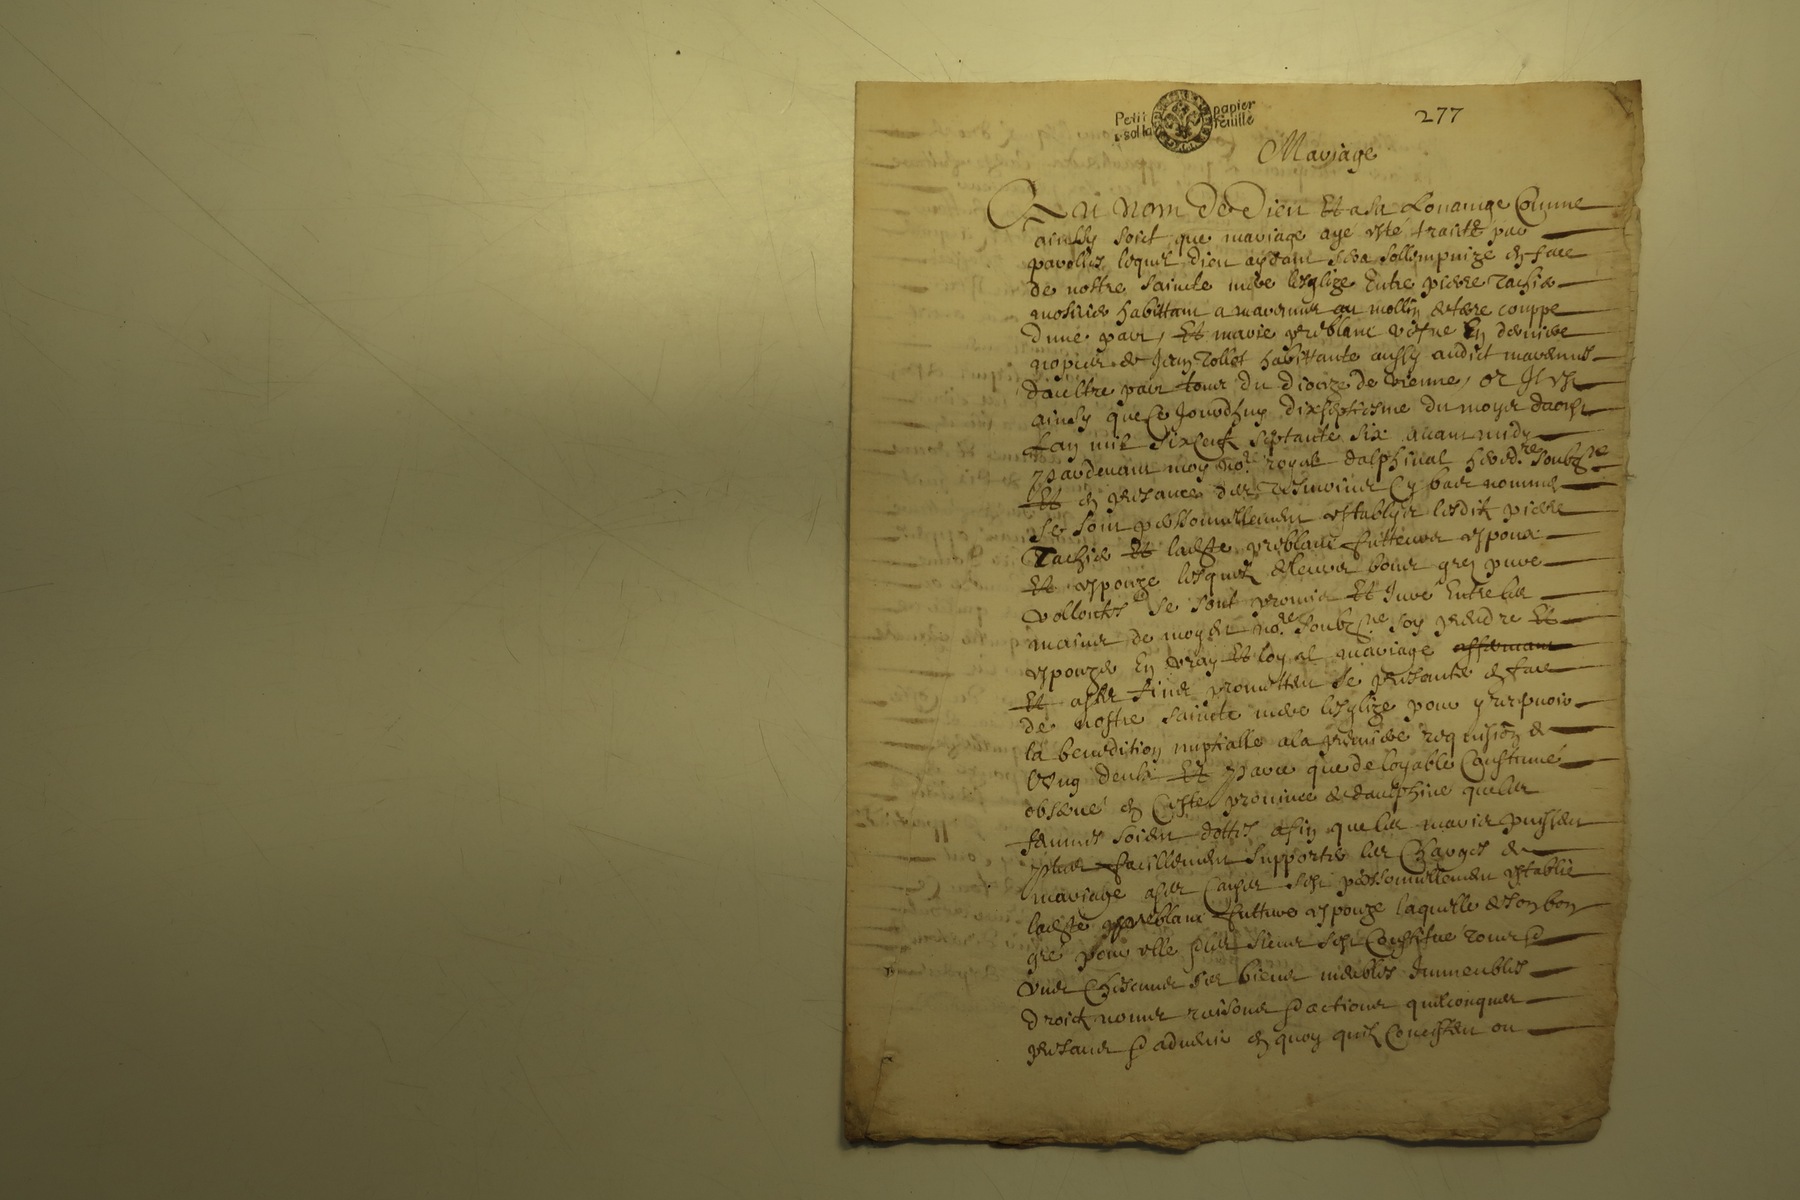 Petit papier
sol la feuille
277
Mariage
Au nom de Dieu Et a sa Louange Comme
ainssy soict que mariage aye este traicte par
parolles lequel dieu aydant sera sollempnize en face
de nostre saincte mere lesglize Entre pierre Tachie
habittant a au mollin de couppe
dune part, Et marie vefve En derniere
de Jean Tollot habittante aussy audict
daultre part tous du dioceze de vienne, or Il est
ainsy que Ce Jourdhuy dixseptiesme du moys daoust
Lan mil sixcent septante six avant midy
Pardevant moy nore royal dalphinal hered.re soubzne
Et en presance des tesmoings Cy bas nommes
se sont personnellement establys lesdits pierre
Tachie Et ladite future espoux
Et espouze lesquels de leurs bons grez pure
vollontes se sont promis Et Jure Entre les
mains de moydit nore soubzne soy prendre Et
espouzer En vray Et loyal mariage
Et a ses fins promettent se presanter en face
de nostre saincte mere lesglize pour y recepvoir
la benedition nuptialle a la premiere requision de
lung deulx Et Parce que de loyable Coustume
observe en Ceste province de daulphine que les
femmes soient dottes afin que les maris puissent
plus facillement supporter les Charges de
mariage a ses Causes sest personnellement establie
ladite future espouze laquelle de son bon
gre pour elle les siens sest Constitue tous
uns Chescuns ses biens meubles Immeubles
droicts noms raisons actions quelconques
presans advenir en quoy quilz Concistent ou